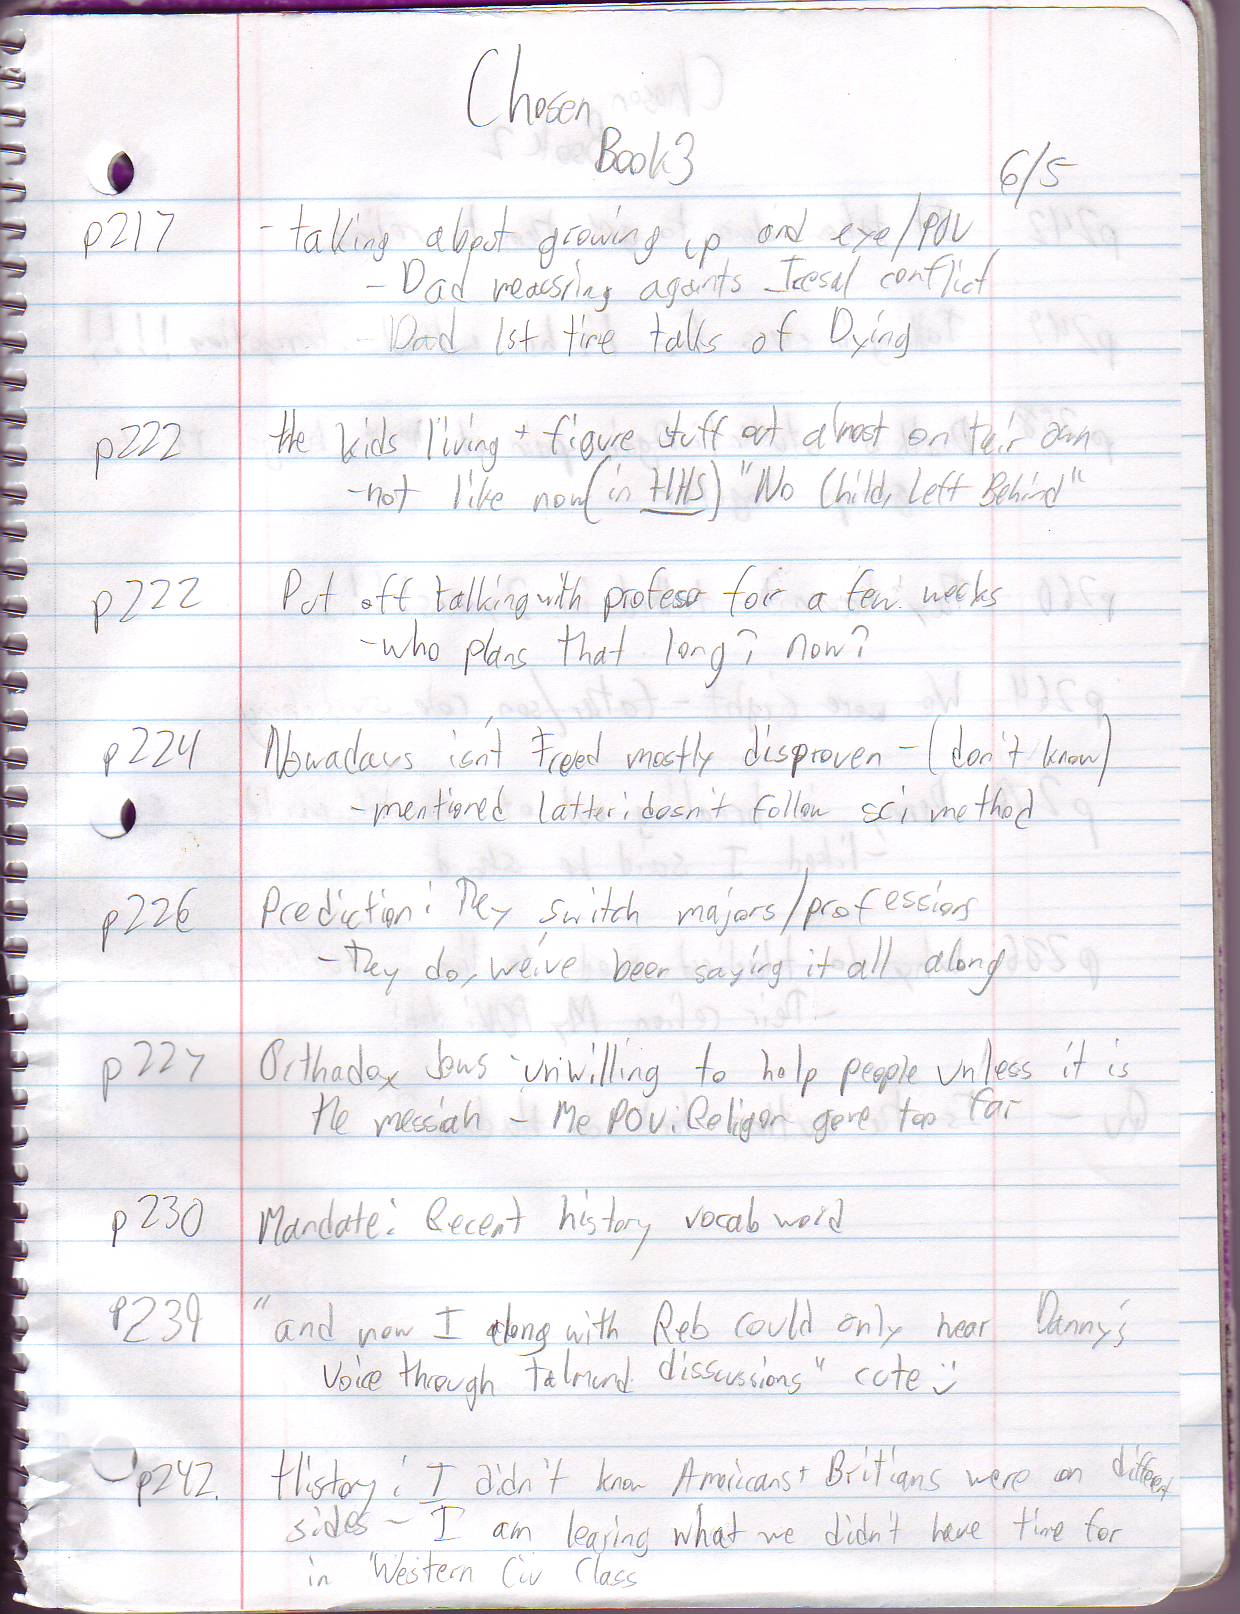 Chosen
Book 3
6/5
p217 - talking about growing up and eye/POV
- Dad reassring againts Iresal conflict
- Dad 1st time talks of Dying
p222 the kids living + figure stuff out almost on teir own
- not like now (in HHS) "No Child, Left Behind"
p222 Put off talking with profesor for a few weeks
- who plans that long? now?
p224 Nowadays isn't Freed mostly disproven - (don't know)
- mentioned latter: doesn't follow sci method
p226 Prediction: They switch majors/professions
- They do, we've been saying it all along
p227 Orthadox Jews - unwilling to help people unless it is
the messiah - Me POV: Religon gone too far
p230 Mandate: Recent history vocab word
p239 "and now I along with Reb could only hear Danny's
voice through talmund disscussions" cute :)
p242. History: I didn't know Americans + Britians were on different
sides - I am learing what we didn't have time for
in "Western Civ Class